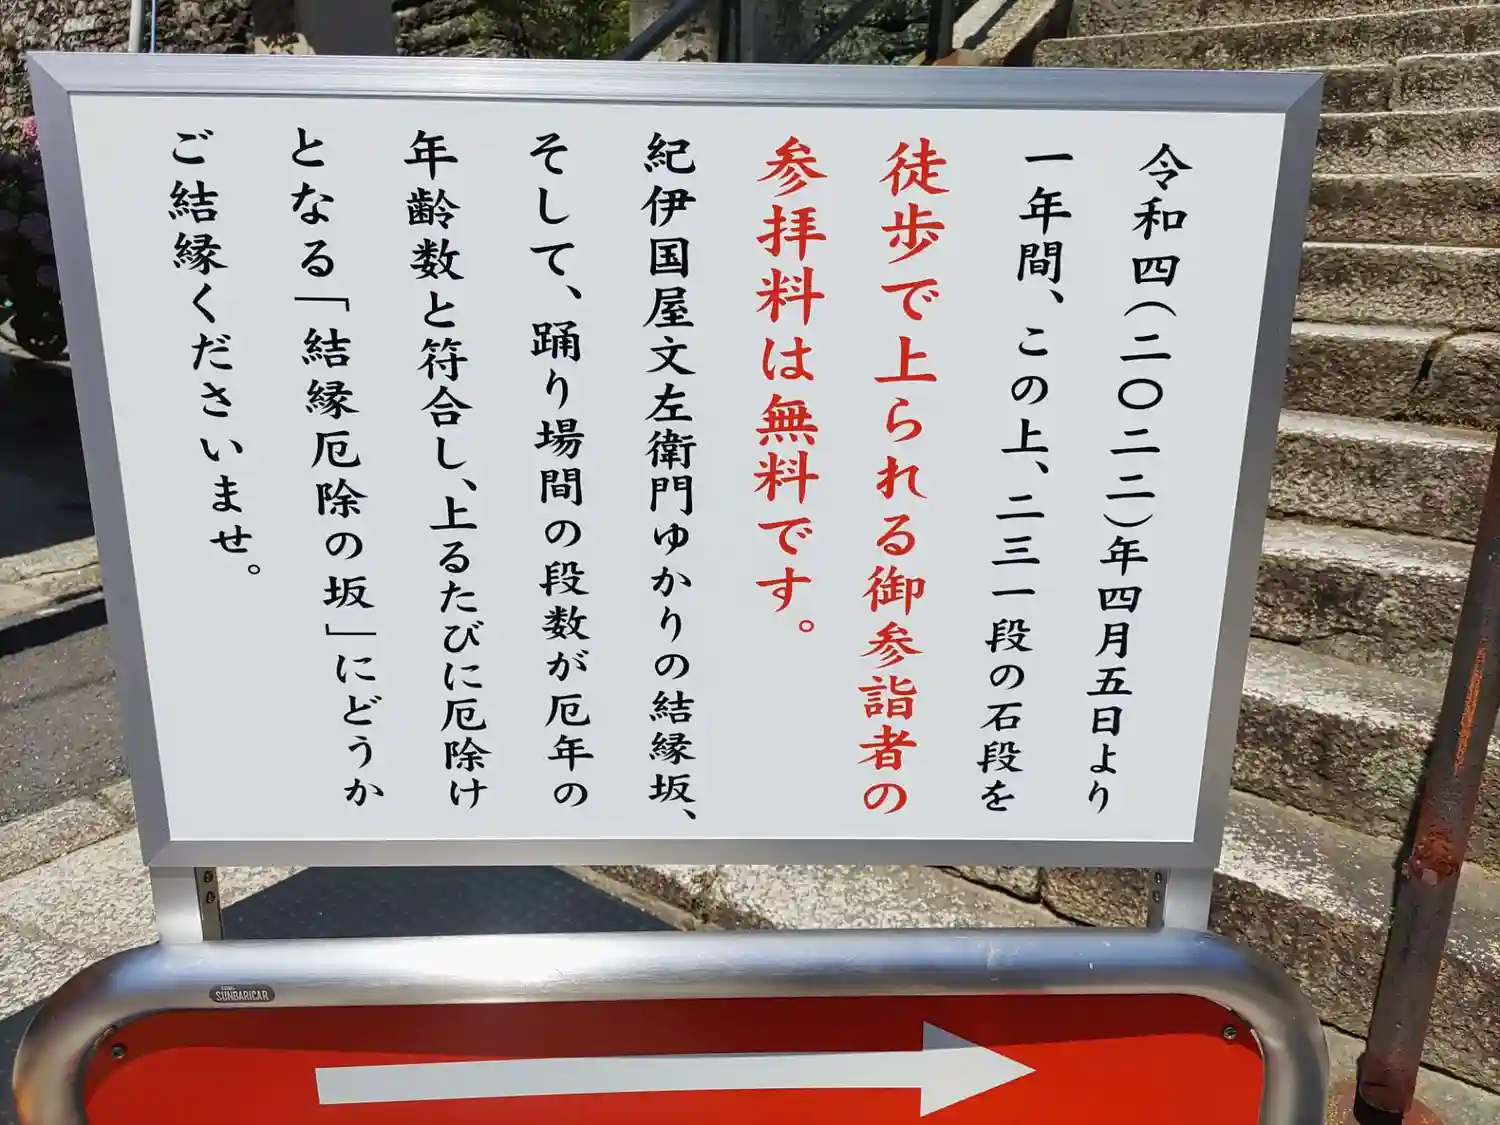 令和四(二〇二二)年四月五日より
一年間、この上、二三一段の石段を
徒歩で上られる御参詣者の
参拝料は無料です。
紀伊国屋文左衛門ゆかりの結縁坂、
そして、踊り場間の段数が厄年の
年齢数と符合し、上るたびに厄除け
となる「結縁厄除の坂」にどうか
ご結縁くださいませ。
SUNBARICAR